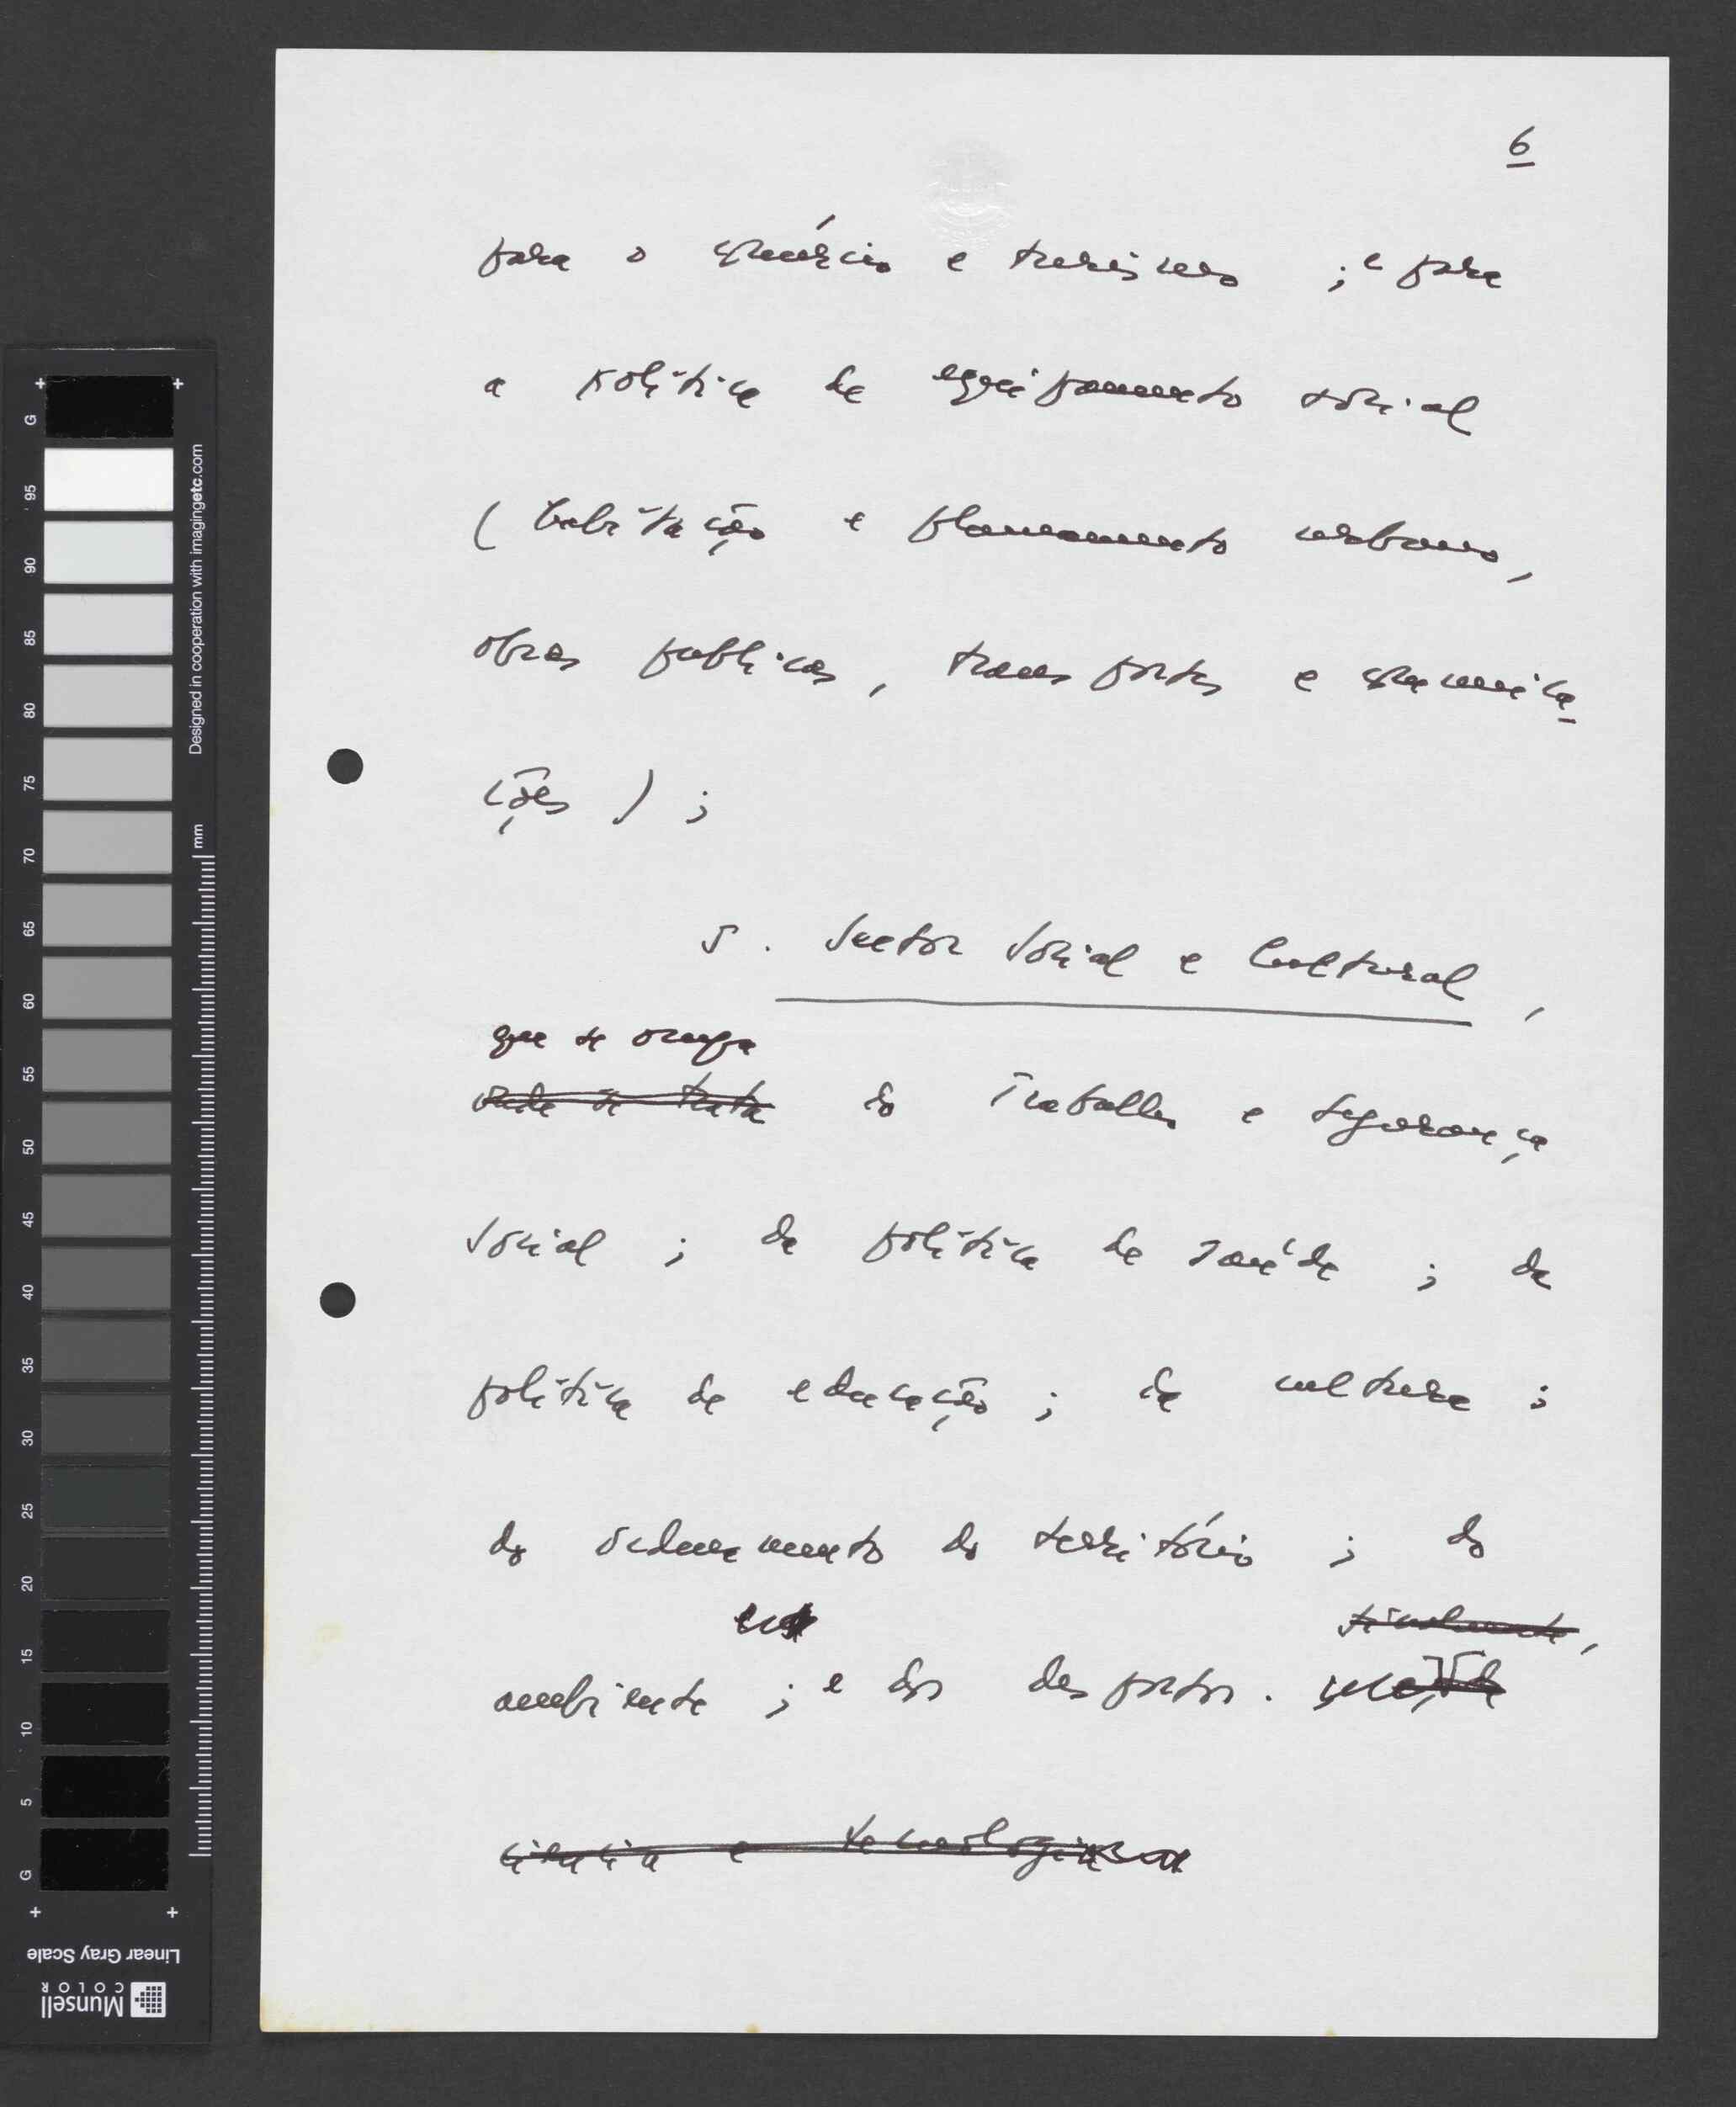 6
para o comércio e turismo ; e para
a política de equipamento social
( habitação e planeamento urbano,
obras publicas, transportes e comunica-
ções ) ;
5. Sector Social e Cultural,
que se ocupa
onde se trata do Trabalho e Segurança
Social ; da política de saúde ; da
política de educação ; da cultura ;
do ordenamento do território ; do
ambiente ; e dos desportos.
ciência e tecnologia
G
95
90
85
80
75
70
65
60
55
50
45
40
35
30
25
20
15
10
5
G
Designed in cooperation with imagingetc.com
mm
Linear Gray Scale
Munsell
COLOR